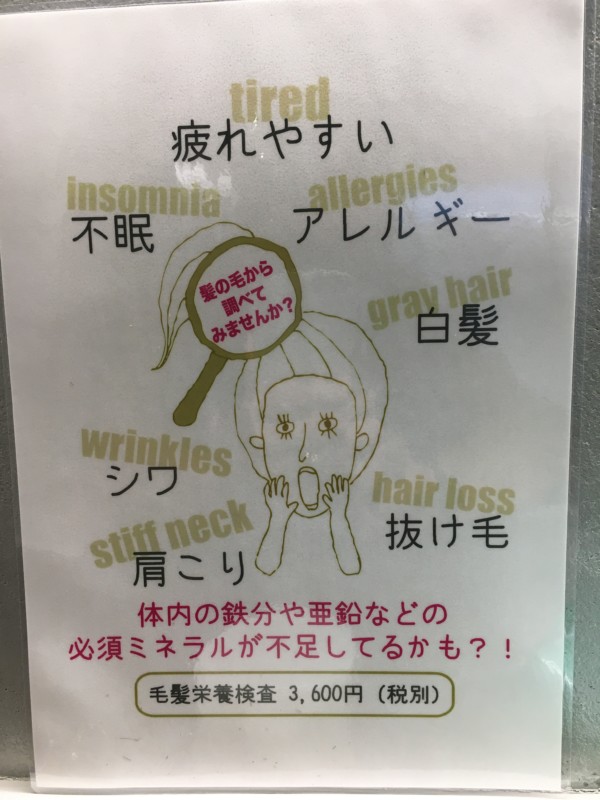 tired
疲れやすい
insomnia
不眠
allergies
アレルギー
髪の毛から
調べて
みませんか?
gray hair
白髪
wrinkles
シワ
hair loss
抜け毛
stiff neck
肩こり
体内の鉄分や亜鉛などの
必須ミネラルが不足してるかも?!
毛髪栄養検査 3,600円 (税別)